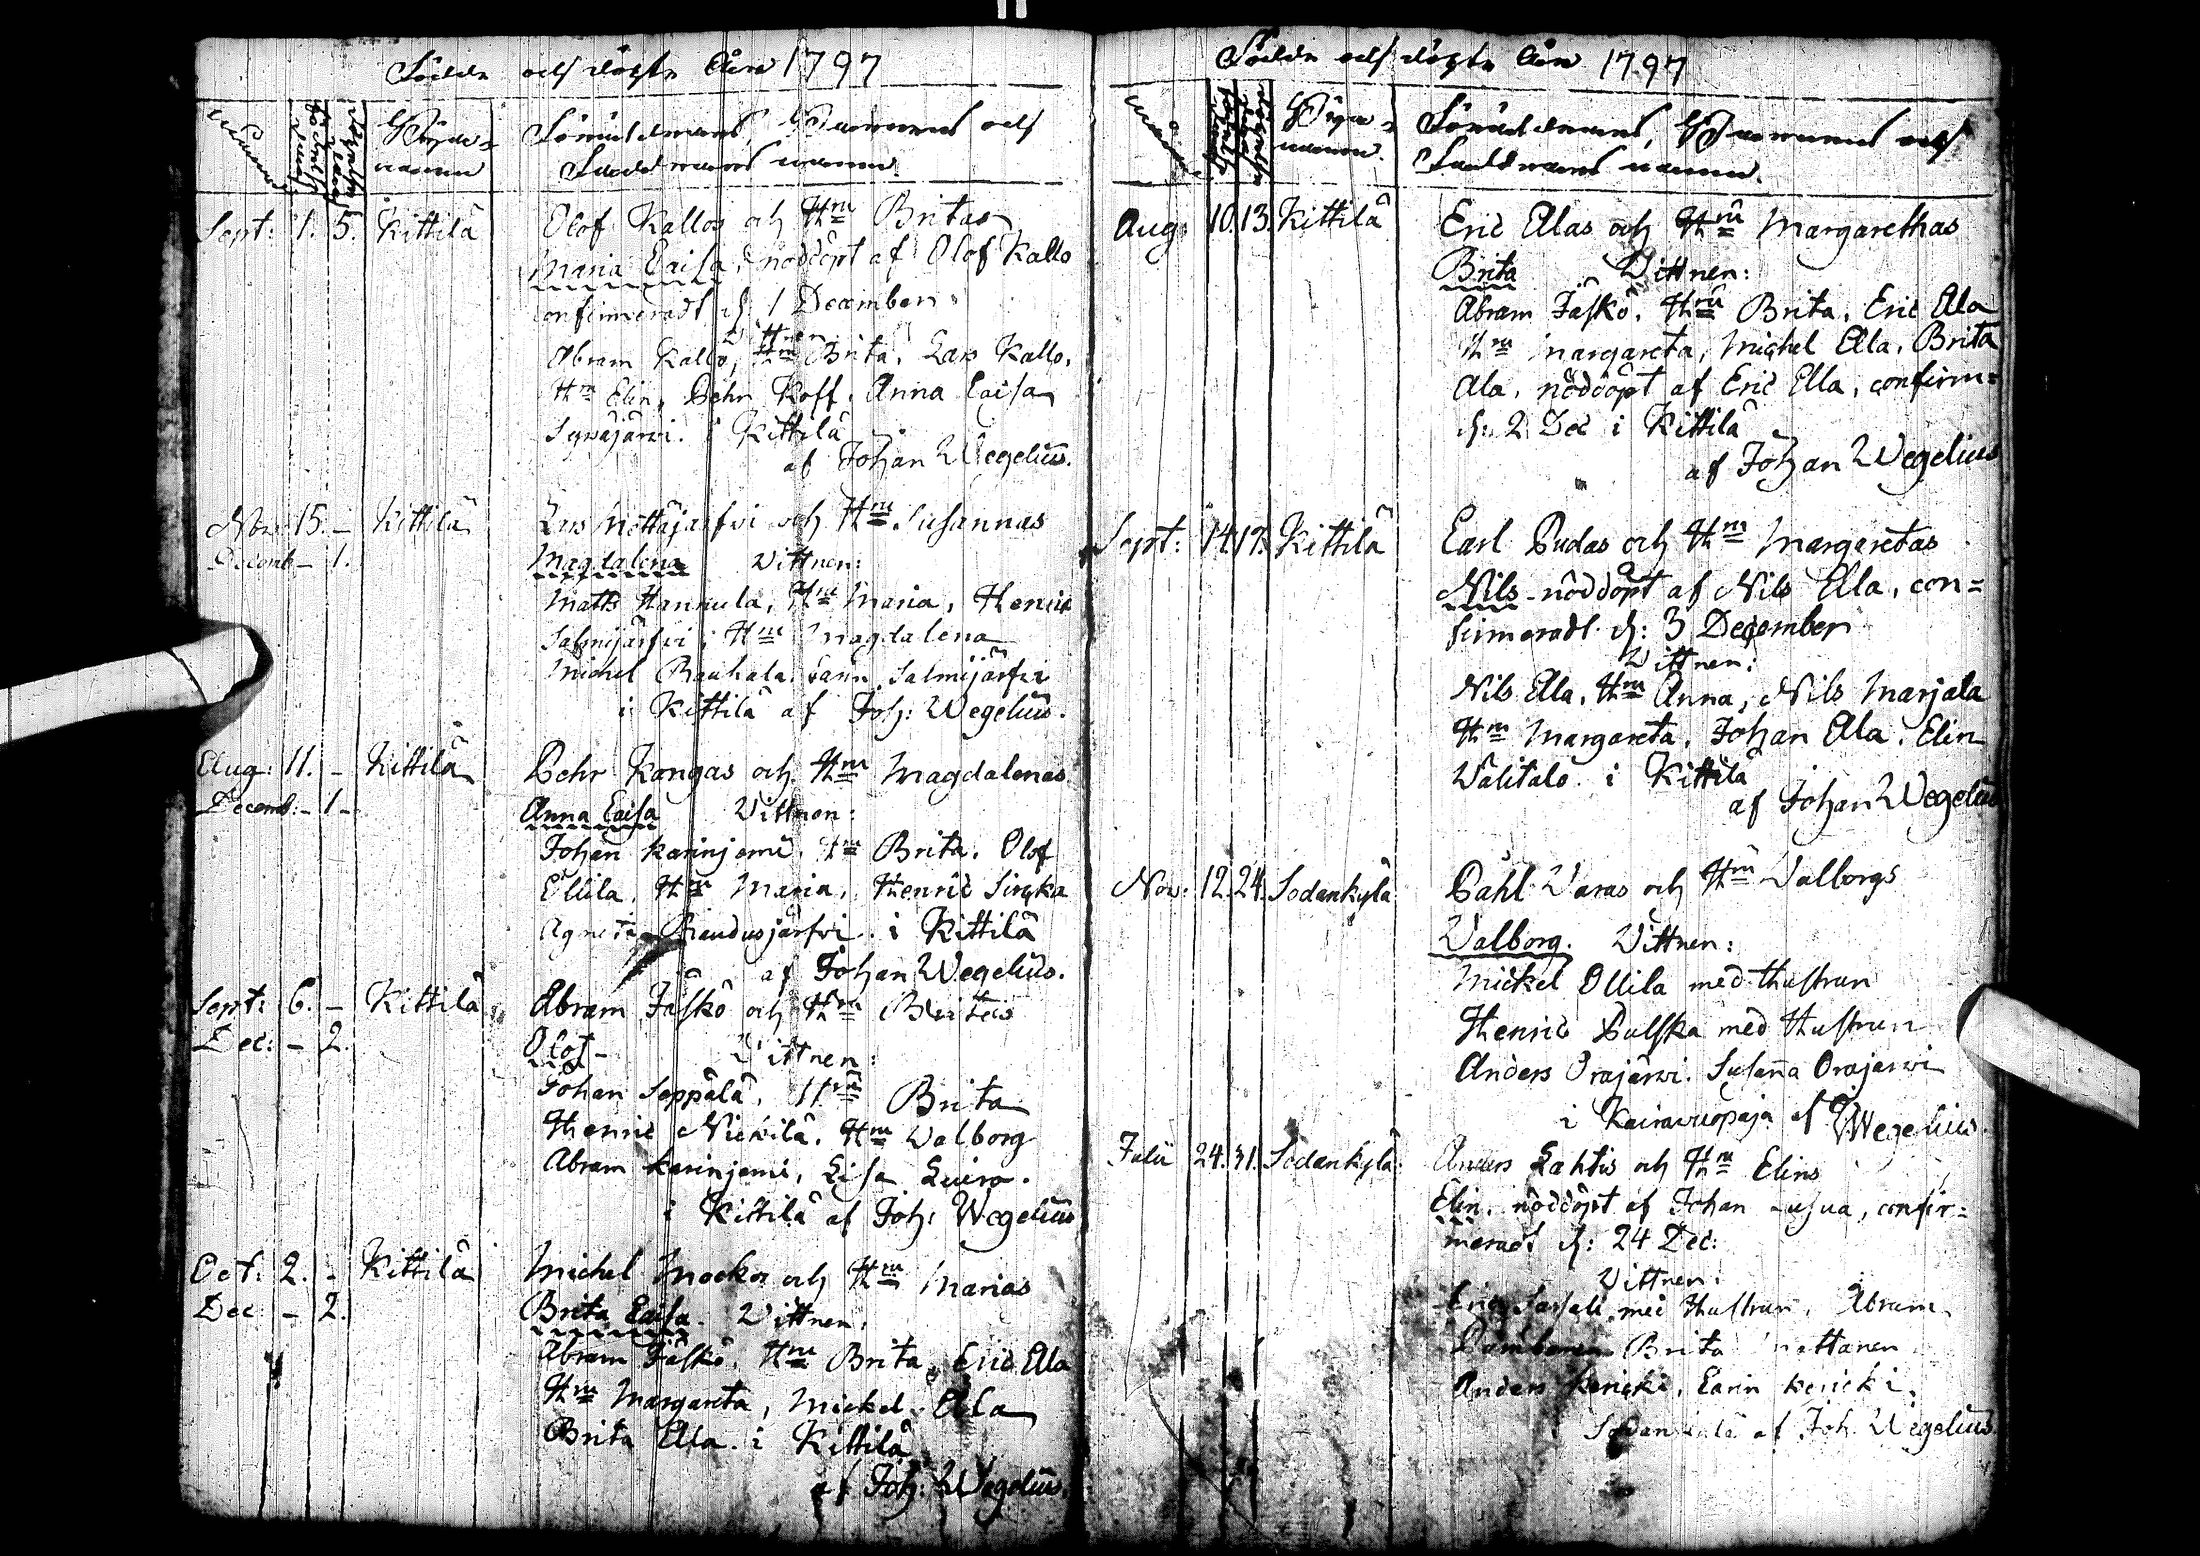 Födde och döpte Åhr 1797
Månad
Födelse
Döpelse
Byars
namn
Föräldrarnas, Barnens och
Faddrarnas namn
Sept: 1. 5. Kittilä Olof Kallos och Hru Britas
Maria Caisa, nöddöpt af Olof Kallo
confirmeradt d: 1 December
Vittnen
Abram Kallo, Hru Brita, Lars Kallo,
Hru Elin, Pehr Koff, Anna Caisa
Sywäjärvi. i Kittilä
af Johan Wegelius.
Nov: 15. - Kittilä Lars Möttäjärfvi och Hru Susannas
Decemb - 1. Magdalena Vittnen:
Matts Hannula, Hru Maria, Henric
Salmijärfvi, Hru Magdalena
Michel Rauhala, Carin Salmijärfvi
i Kittilä af Joh: Wegelius.
Aug: 11. - Kittilä Pehr Kangas och Hru Magdalenas
Decemb: - 1 - Anna Caisa Vittnen:
Johan Karinjemi, Hru Brita, Olof
Ollila, Hru Maria, Henric Sircka
Agneta Raudusjärfvi. i Kittilä
af Johan Wegelius.
Sept: 6. - Kittilä Abram Jäskö och Hru Britas
Dec: - 2. Olof - Vittnen:
Johan Seppälä, Hru Brita
Henric Nickilä, Hru Walborg
Abram Karinjemi, Lisa Luiro.
i Kittilä af Joh: Wegelius
Oct: 2. - Kittilä Michel Mockos och Hru Marias
Dec - 2. Brita Caisa. Vittnen.
Abram Jäskö, Hru Brita, Eric Ella
Hru Margareta, Mickel Ella
Brita Ella. i Kittilä
af Joh: Wegelius.
Födde och döpte Åhr 1797
Månad
Födelse
Döpelse
Byars
namn.
Föräldrarnas, Barnens och
Faddrarnas namn.
Aug: 10. 13. Kittilä Eric Elas och Hru Margarethas
Brita Vittnen:
Abram Jäskö, Hru Brita, Eric Ela
Hru Margareta, Michel Ella, Brita
Ala, nöddöpt af Eric Ella, confirm=
d: 2 Dec i Kittilä
af Johan Wegelius
Sept: 14. 17. Kittilä Carl Pudas och Hru Margaretas
Nils - nöddöpt af Nils Ella, con=
firmeradt d: 3 December
Vittnen:
Nils Ella, Hru Anna, Nils Marjala
Hru Margareta, Johan Ella, Elin
Wälitalo. i Kittilä
af Johan Wegelius
Nov: 12. 24. Sodankylä Påhl Varas och Hru Valborgs
Valborg. Vittnen:
Mickel Ollila med Hustrun
Henric Pulska med Hustrun
Anders Orajärwi. Susanna Orajärwi
i Kairavuopaja af Wegelius.
Julii 24. 31. Sodankylä Anders Lahtis och Hru Elins
Elin, nöddöpt af Johan confir=
meradt d: 24 Dec:
Vittnen:
Eric med Hustrun, Abram
Brita Mattanen
Anders Kericki, Carin Kericki.
Sodankylä af Joh. Wegelius